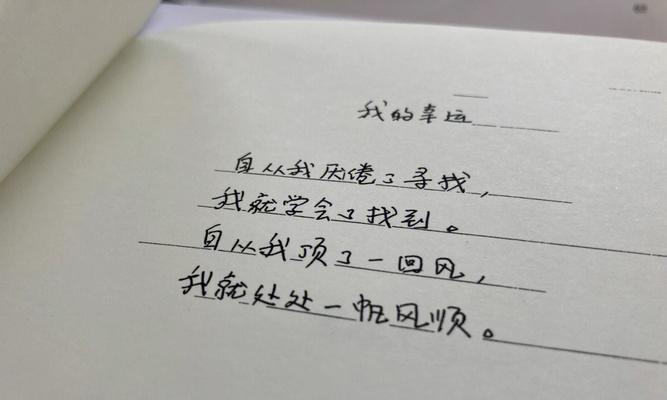 我的幸运
自从我厌倦了寻找,
我就学会了找到。
自从我顶了一回风,
我就处处一帆风顺。